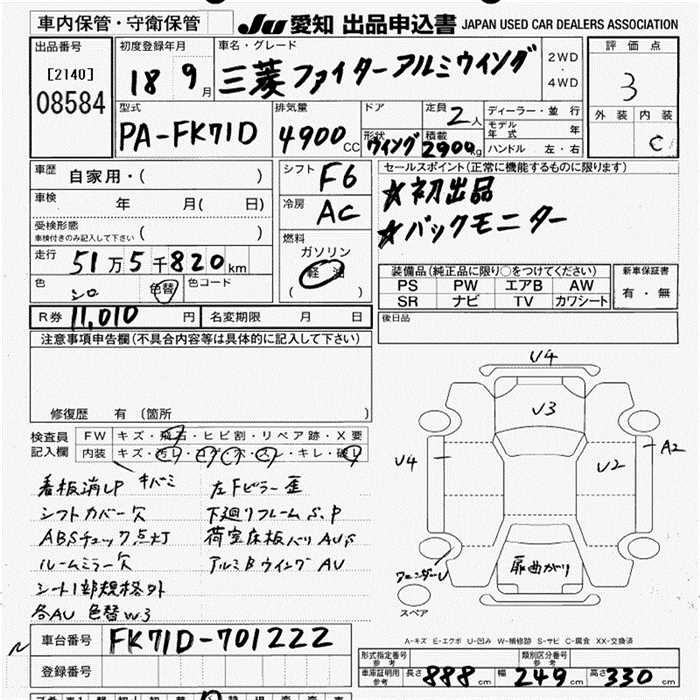 車内保管・守衛保管
JU 愛知 出品申込書 JAPAN USED CAR DEALERS ASSOCIATION
出品番号 [2140] 08584
初度登録年月 18 9月
車名・グレード 三菱ファイターアルミウイング
2WD・4WD
評価点 3
外装 内装 C
型式 PA-FK71D
排気量 4900cc
ドア 形状 ウイング
定員 2人
積載 2900kg
ディーラー・並行
モデル年式 年
ハンドル 左・右
車歴 自家用・( )
車検 年 月( 日)
受検形態 ( )
車検付きのみ記入して下さい
走行 51万5千820km
色 シロ 色替 色コード
シフト F6
冷房 AC
燃料 ガソリン 軽油 ( )
セールスポイント(正常に機能するものに限ります)
★初出品
★バックモニター
装備品(純正品に限り○をつけてください)
PS PW エアB AW
SR ナビ TV カワシート
新車保証書 有・無
R券 11,010円 名変期限 月 日
後日品
注意事項申告欄(不具合内容等は具体的に記入して下さい)
修復歴 有(箇所 )
検査員記入欄
FW キズ・飛石・ヒビ割・リペア跡・X要
内装 キズ・汚レ・コゲ・穴・スレ・キレ・破レ
看板消しP キバミ 左Fピラー歪
シフトカバー欠 下廻りフレームS,P
ABSチェック点灯 荷室床板バリAU,S
ルームミラー欠 アルミBウイングAU
シート1部規格外
各AU 色替W3
U4
U3
U4 U2 A2
扉曲がり
スペア
A-キズ E-エクボ U-凹み W-補修跡 S-サビ C-腐食 XX-交換済
車台番号 FK71D-701222
登録番号
形式指定番号 参考 類別区分番号 参考
車庫証明用 参考 長さ888cm 幅249cm 高さ330cm